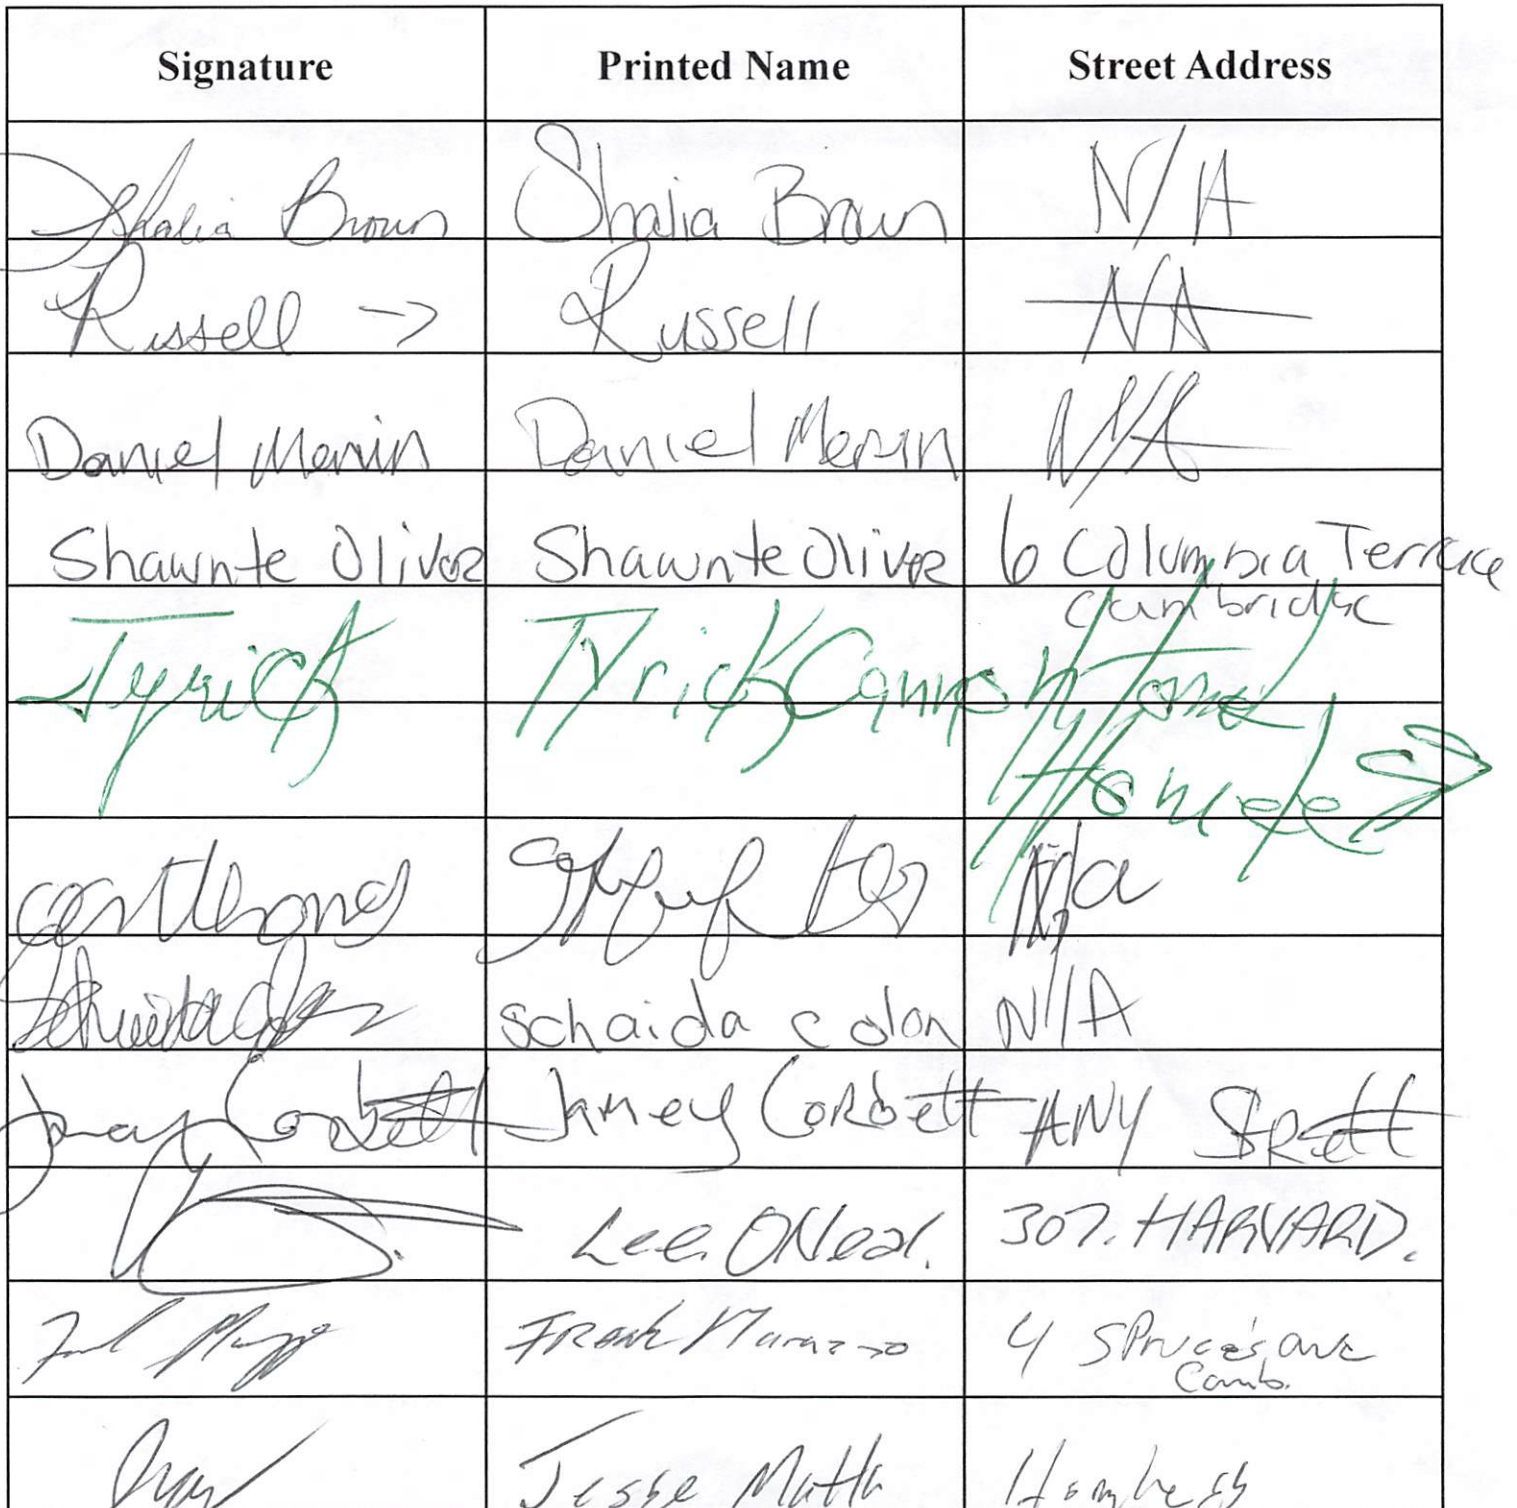 Signature Printed Name Street Address
Shalia Brown Shalia Brown N/A
Russell → Russell NA
Daniel Menin Daniel Menin N/A
Shawnte Oliver Shawnte Oliver 6 Columbia Terrace
Cambridge
Tyrick Tyrick
N/a
schaida colon N/A
Jamey Corbett Jamey Corbett ANY Strett
Lee ONeal. 307. HARVARD.
Frank 4 Spruce ave
Camb.
Jesse